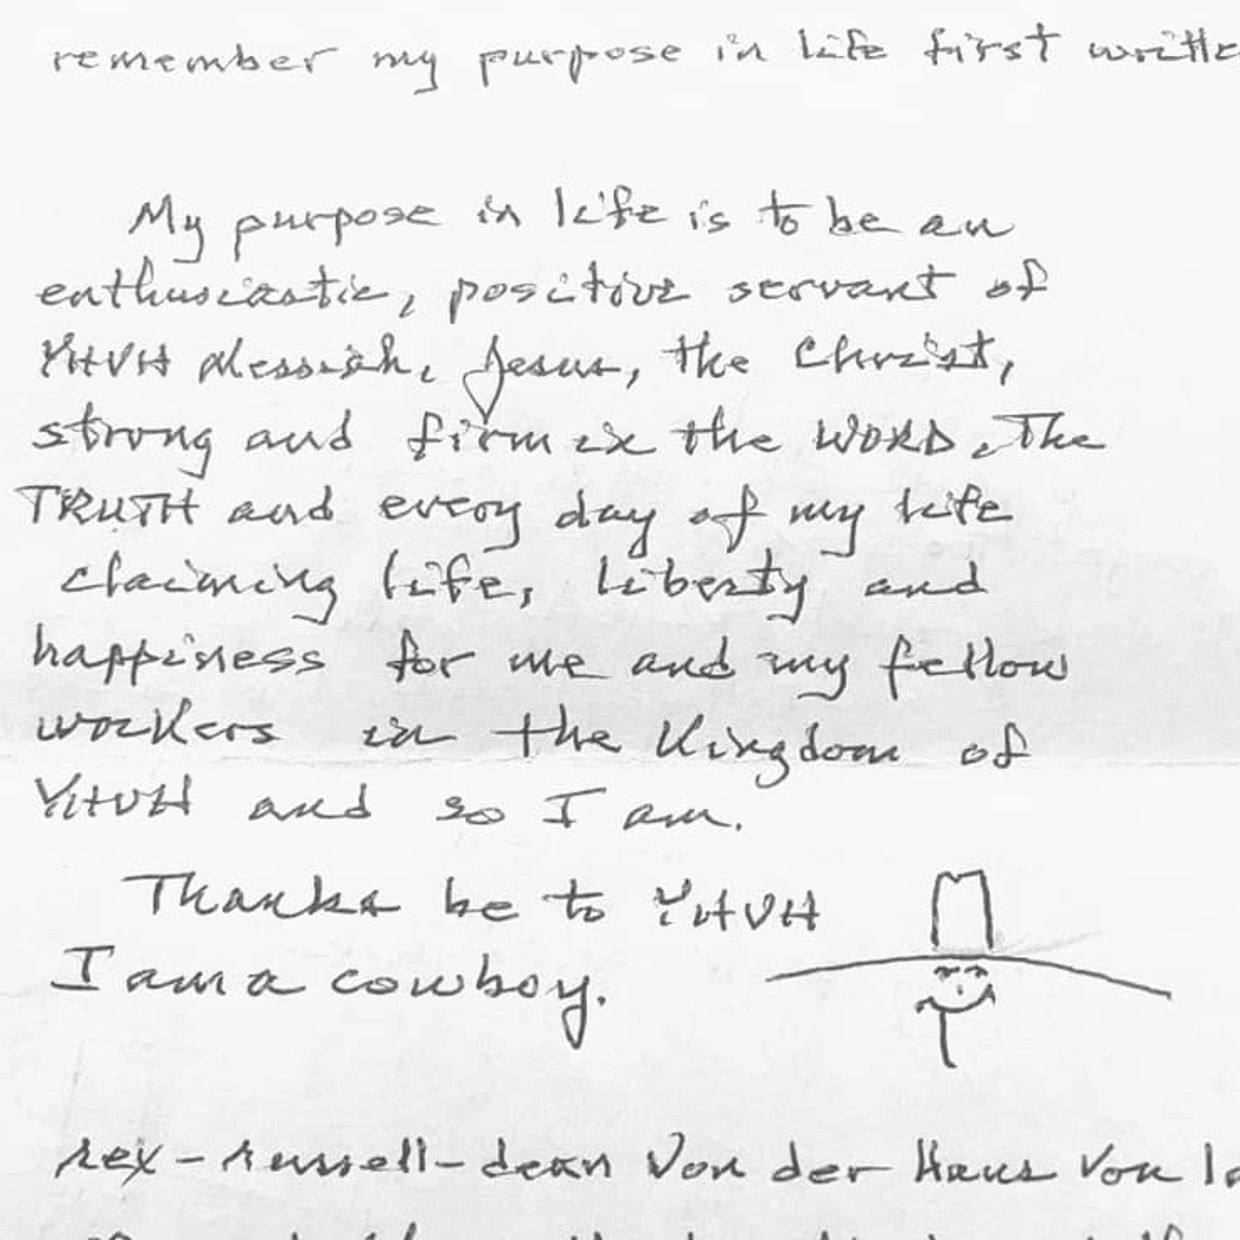 remember my purpose in life first writte
My purpose in life is to be an
enthusiastic, positive servant of
YHVH Messiah, Jesus, the Christ,
strong and firm in the WORD, The
TRUTH and every day of my life
claiming life, liberty and
happiness for me and my fellow
workers in the Kingdom of
YHVH and so I am.
Thanks be to YHVH
I am a cowboy.
rex-russell-dean Von der Haus Von